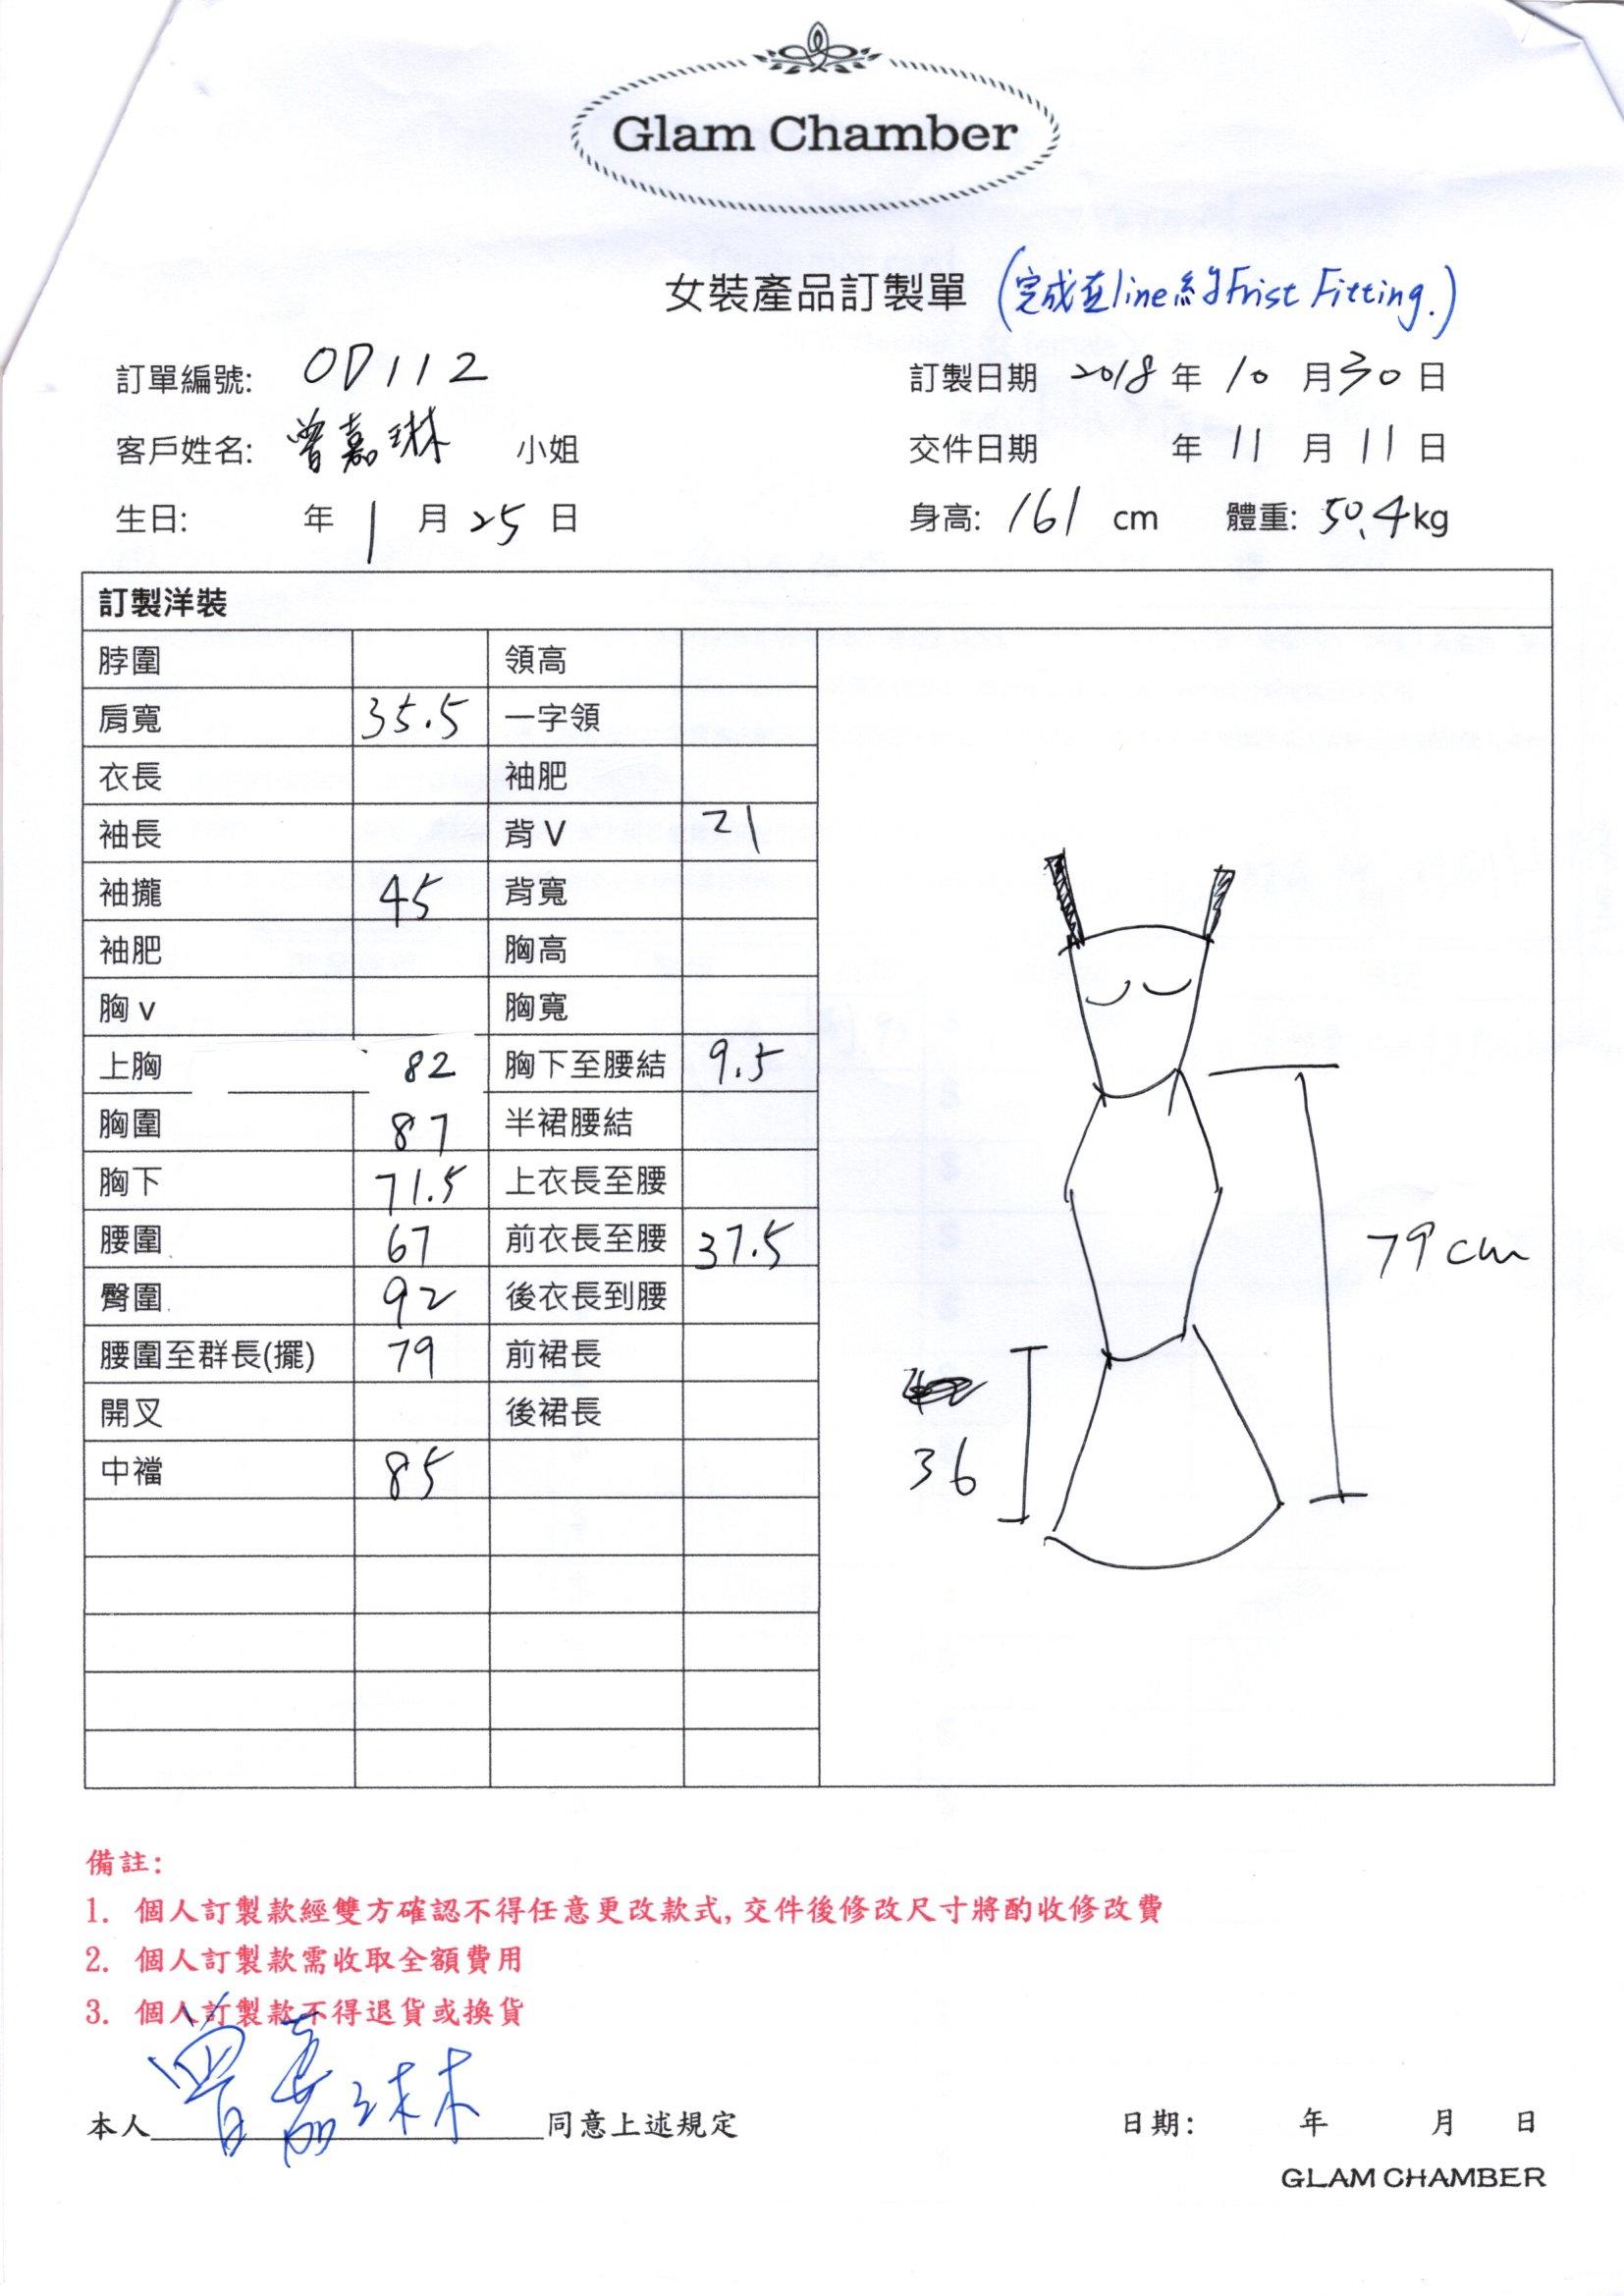 Glam Chamber
女裝產品訂製單 (完成在line約Frist Fitting.)
訂單編號: OD112 訂製日期 2018 年 10 月 30 日
客戶姓名: 曾嘉琳 小姐 交件日期 年 11 月 11 日
生日: 年 1 月 25 日 身高: 161 cm 體重: 50.4 kg
訂製洋裝
脖圍 領高
肩寬 35.5 一字領
衣長 袖肥
袖長 背V 21
袖攏 45 背寬
袖肥 胸高
胸v 胸寬
上胸 82 胸下至腰結 9.5
胸圍 87 半裙腰結
胸下 71.5 上衣長至腰
腰圍 67 前衣長至腰 37.5
臀圍 92 後衣長到腰
腰圍至群長(擺) 79 前裙長
開叉 後裙長
中襠 85
79 cm
36
備註:
1. 個人訂製款經雙方確認不得任意更改款式,交件後修改尺寸將酌收修改費
2. 個人訂製款需收取全額費用
3. 個人訂製款不得退貨或換貨
本人 曾嘉琳 同意上述規定 日期: 年 月 日
GLAM CHAMBER